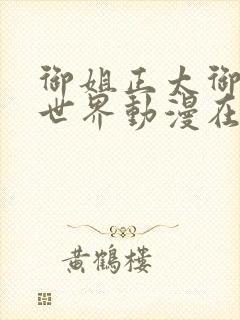 御姐正太御
世界動漫在
黃鶴樓